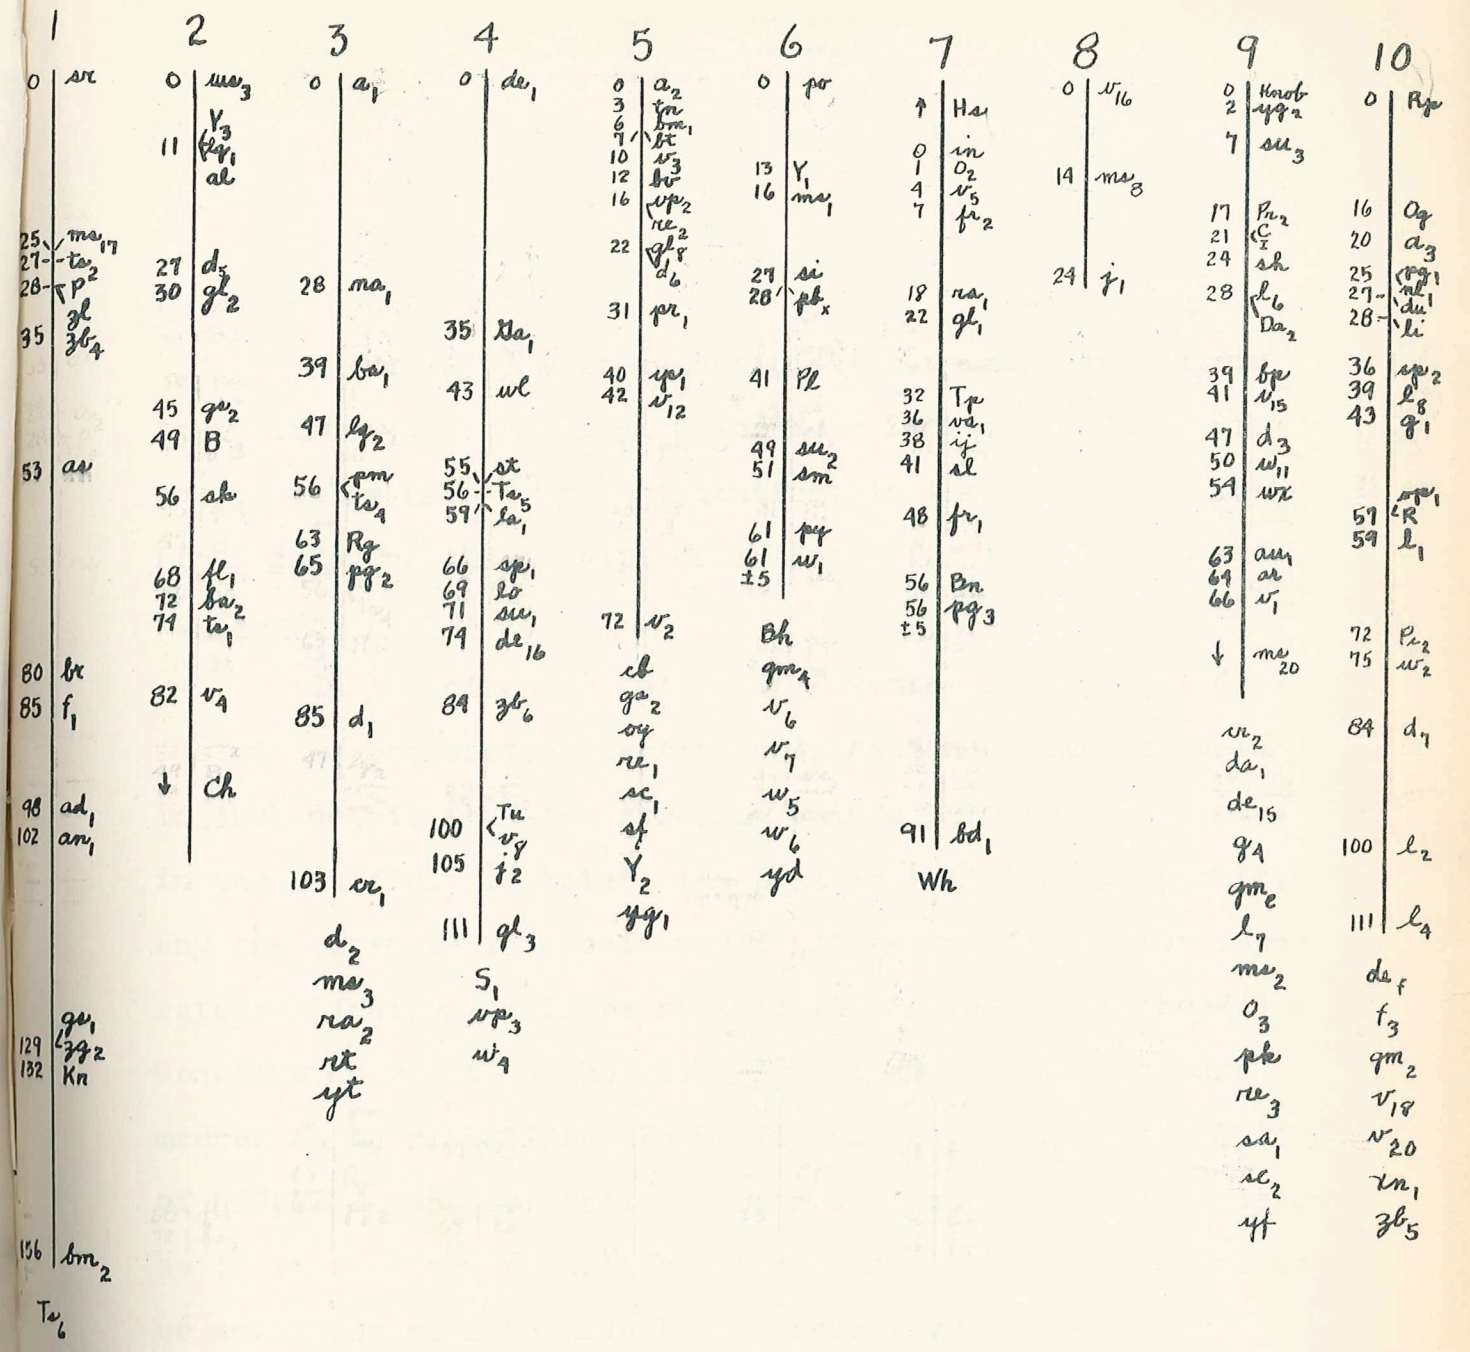 1
0 sr
25 ms17
27 ts2
28 P
zl
35 zb4
53 as
80 br
85 f1
98 ad1
102 an1
gs1
129 zg2
132 Kn
156 bm2
Ts6
2
0 ws3
Y3
11 tg1
al
27 d5
30 gl2
45 gs2
49 B
56 sk
68 fl1
72 ba2
74 ts1
82 v4
↓ Ch
3
0 a1
28 na1
39 ba1
47 lg2
56 pm
ts4
63 Rg
65 pg2
85 d1
103 cr1
d2
ms3
ra2
rt
yt
4
0 de1
35 Ga1
43 wl
55 st
56 Ts5
59 la1
66 sp1
69 lo
71 su1
74 de16
84 zb6
Tu
100 v8
105 j2
111 gl3
S1
vp3
w4
5
0 a2
3 tn
6 bm1
7 bt
10 v3
12 bv
16 vp2
re2
22 gl8
d6
31 pr1
40 ys1
42 v12
72 v2
cb
gs2
oy
re1
sc1
sf
Y2
yg1
6
0 po
13 Y1
16 ms1
27 si
28 pbx
41 Pl
49 su2
51 sm
61 py
61 w1
±5
Bh
gm4
v6
v7
w5
w6
yd
7
↑ Hs
0 in
1 O2
4 v5
7 fr2
18 ra1
22 gl1
32 Tp
36 vs1
38 ij
41 sl
48 fr1
56 Bn
56 pg3
±5
91 bd1
Wh
8
0 v16
14 ms8
24 j1
9
0 Knob
2 yg2
7 su3
17 Pr2
21 C
I
24 sh
28 l6
Da2
39 bp
41 v15
47 d3
50 w11
54 wx
63 au1
64 ar
66 v1
↓ ms20
cr2
da1
de15
g4
gme
l7
ms2
O3
pk
re3
sa1
sc2
yf
10
0 Rp
16 Og
20 a3
25 pg1
27 nl1
du
28 li
36 sp2
39 l8
43 g1
op1
57 R
59 l1
72 Pc2
75 w2
84 d7
100 l2
111 l4
def
f3
gm2
v18
v20
xn1
zb5